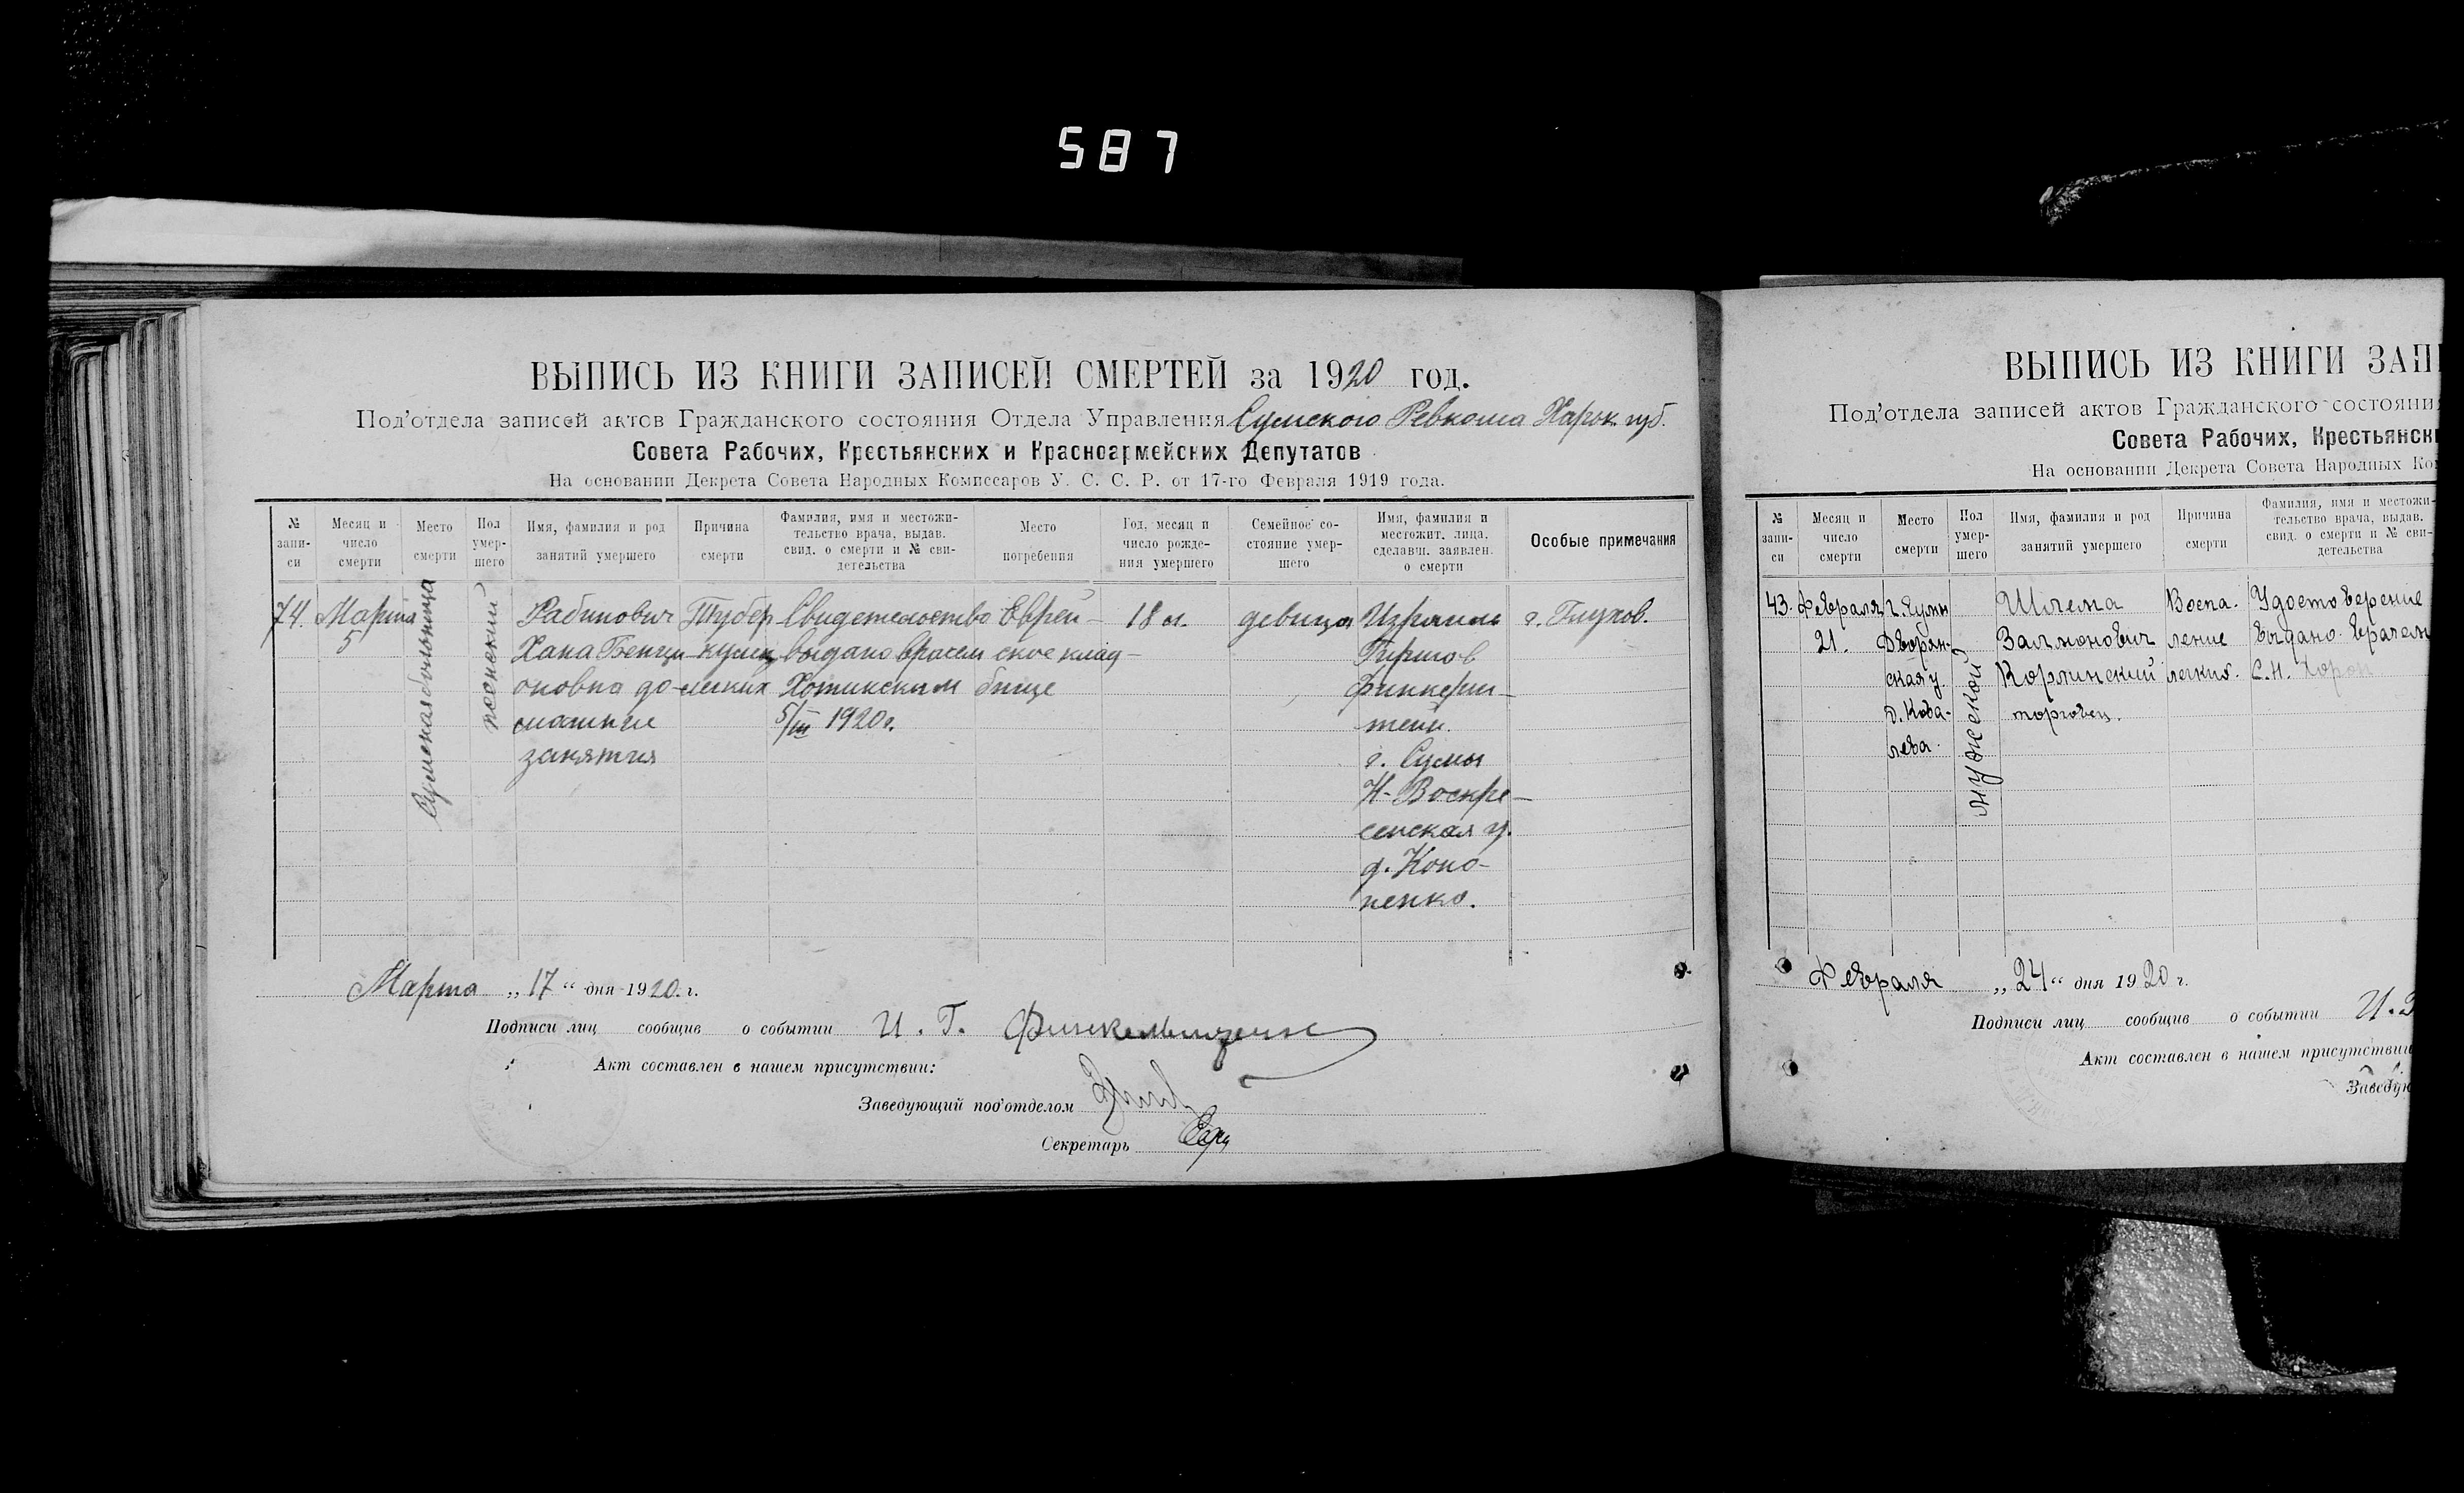 587
ВЫПИСЬ ИЗ КНИГИ ЗАПИСЕЙ СМЕРТЕЙ за 1920 год.
Под'отдела записей актов Гражданского состояния Отдела Управления Сумского Ревкома Харьк. губ.
Совета Рабочих, Крестьянских и Красноармейских Депутатов
На основании Декрета Совета Народных Комиссаров У. С. С. Р. от 17-го Февраля 1919 года.
№ запи-
си
Месяц и
число
смерти
Место
смерти
Пол
умер-
шего
Имя, фамилия и род
занятий умершего
Причина
смерти
Фамилия, имя и местожи-
тельство врача, выдав.
свид. о смерти и № сви-
детельства
Место
погребения
Год, месяц и
число рожде-
ния умершего
Семейное со-
стояние умер-
шего
Имя, фамилия и
местожит. лица,
сделавш. заявлен.
о смерти
Особые примечания
74.
Марта
5
Сумская больница
женский
Рабинович
Хана Бенци-
оновна до-
машние
занятия
Тубер
кулез
легких
Свидетельство
выдано врачем
Хотинским
5/III 1920 г.
Еврей-
ское клад-
бище
18 л.
девица
Израиль
Гиршов
Финкель-
штейн.
г. Сумы
Н-Воскре-
сенская у.
д. Коно-
ненко.
г. Глухов.
Марта „17“ дня 1920. г.
Подписи лиц сообщив о событии И. Г. Финкельштейн
Акт составлен в нашем присутствии:
Заведующий под'отделом
Секретарь
ВЫПИСЬ ИЗ КНИГИ ЗАП
Под'отдела записей актов Гражданского состояни
Совета Рабочих, Крестьянск
На основании Декрета Совета Народных Ко
№
запи-
си
Месяц и
число
смерти
Место
смерти
Пол
умер-
шего
Имя, фамилия и род
занятий умершего
Причина
смерти
Фамилия, имя и местожи-
тельство врача, выдав.
свид. о смерти и № сви-
детельства
43.
Февраля
21.
г. Сумы
Дворян-
ская у.
д. Кова-
лева.
мужской
Шлема
Залманович
Корсинский
торговец.
Воспа-
ление
легких.
Удостоверение
выдано врачем
С. Н.
Февраля „24“ дня 1920 г.
Подписи лиц сообщив о событии И.
Акт составлен в нашем присутствии
Заведую